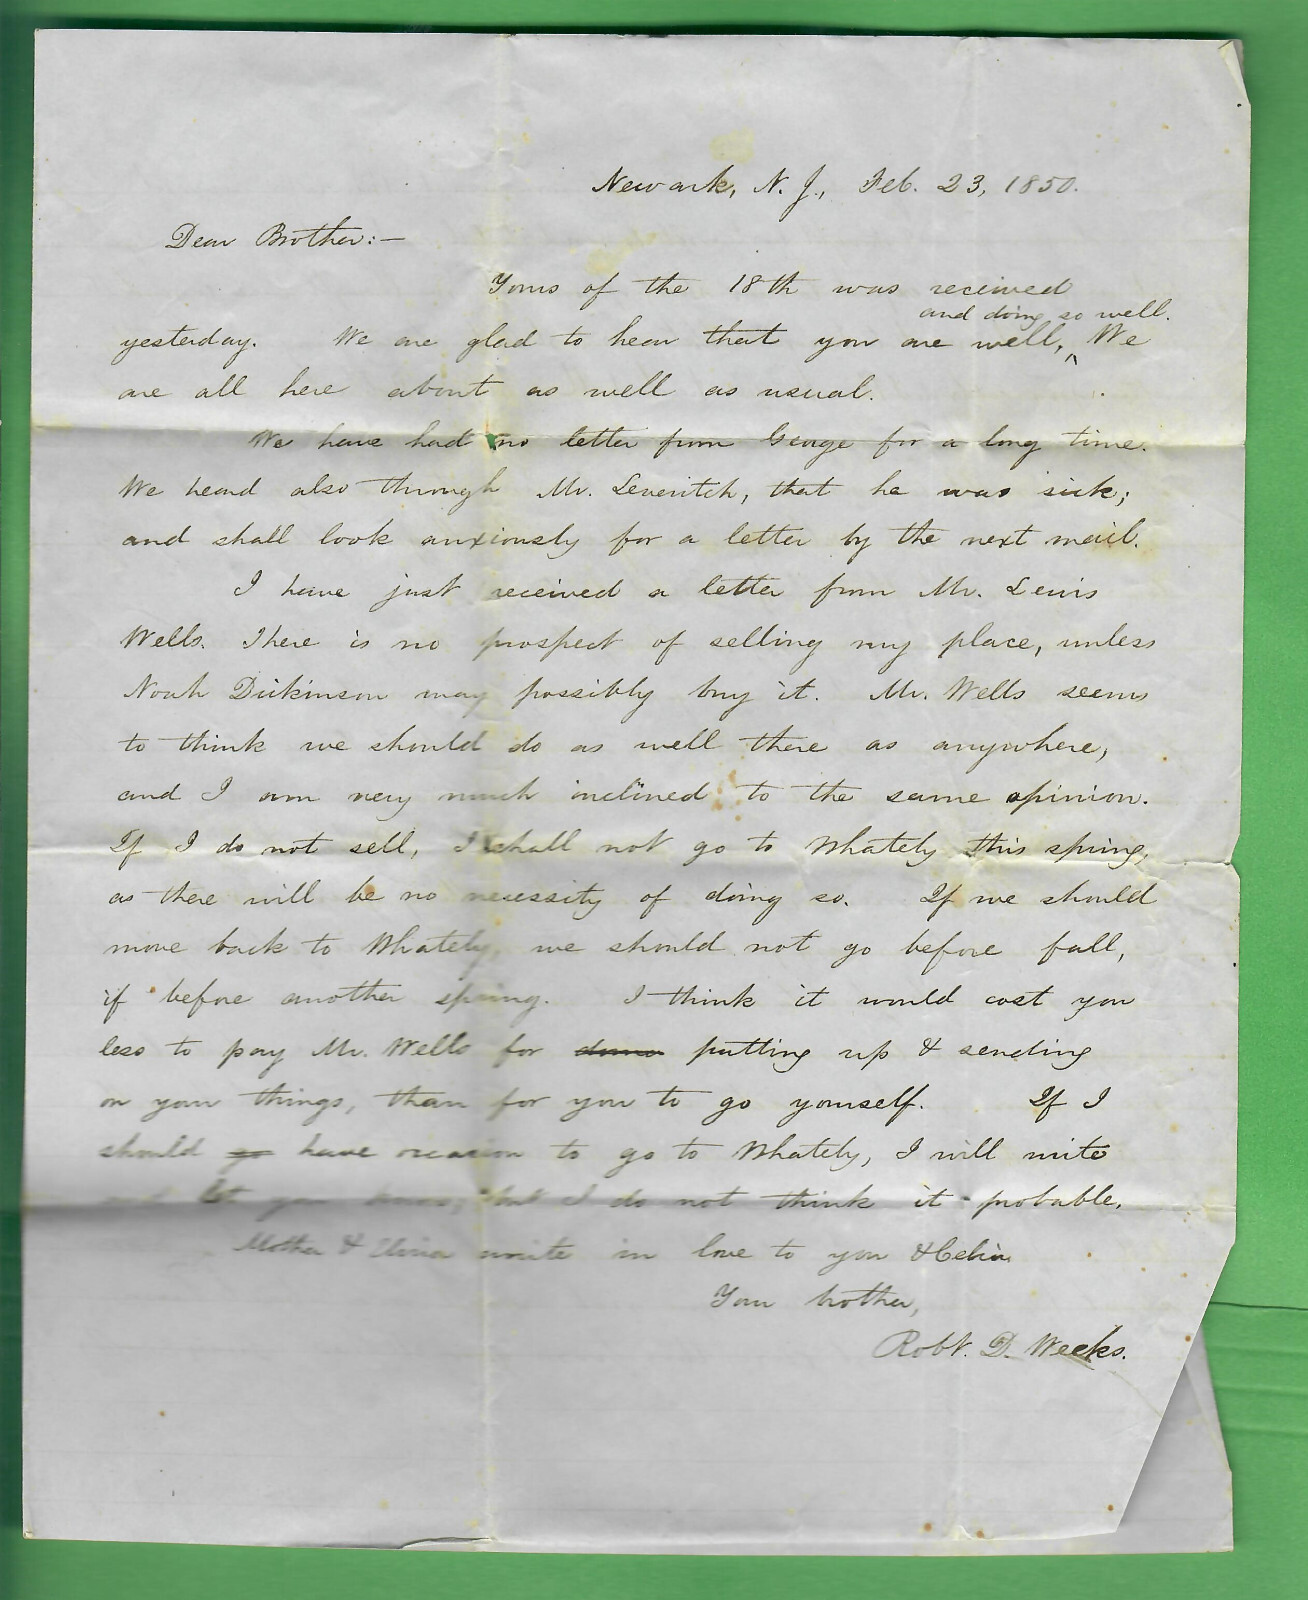 Newark, N. J., Feb. 23, 1850.
Dear Brother:—
Yours of the 18th was received
and doing so well.
yesterday. We are glad to hear that you are well, ^ We
are all here about as well as usual.
We have had no letter from George for a long time.
We heard also through Mr. Leveritch, that he was sick;
and shall look anxiously for a letter by the next mail.
I have just received a letter from Mr. Lewis
Wells. There is no prospect of selling my place, unless
Noah Dickinson may possibly buy it. Mr. Wells seems
to think we should do as well there as anywhere,
and I am very much inclined to the same opinion.
If I do not sell, I shall not go to Whately this spring,
as there will be no necessity of doing so. If we should
move back to Whately, we should not go before fall,
if before another spring. I think it would cost you
less to pay Mr. Wells for putting up & sending
on your things, than for you to go yourself. If I
should go have occasion to go to Whately, I will write
and let you know, but I do not think it probable.
Mother & unite in love to you & Celia.
Your brother,
Robt. D. Weeks.